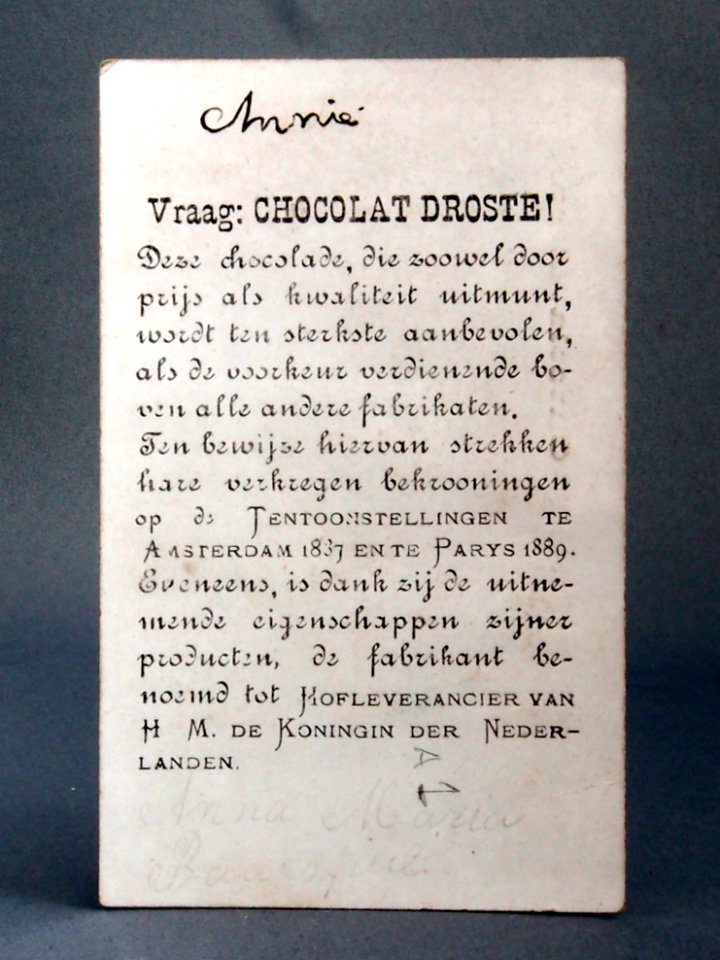 Annie
Vraag: CHOCOLAT DROSTE!
Deze chocolade, die zoowel door
prijs als kwaliteit uitmunt,
wordt ten sterkste aanbevolen,
als de voorkeur verdienende bo-
ven alle andere fabrikaten.
Ten bewijze hiervan strekken
hare verkregen bekrooningen
op de TENTOONSTELLINGEN TE
AMSTERDAM 1887 EN TE PARYS 1889.
Eveneens, is dank zij de uitne-
mende eigenschappen zijner
producten, de fabrikant be-
noemd tot HOFLEVERANCIER VAN
H M. DE KONINGIN DER NEDER-
LANDEN.
Anna Maria